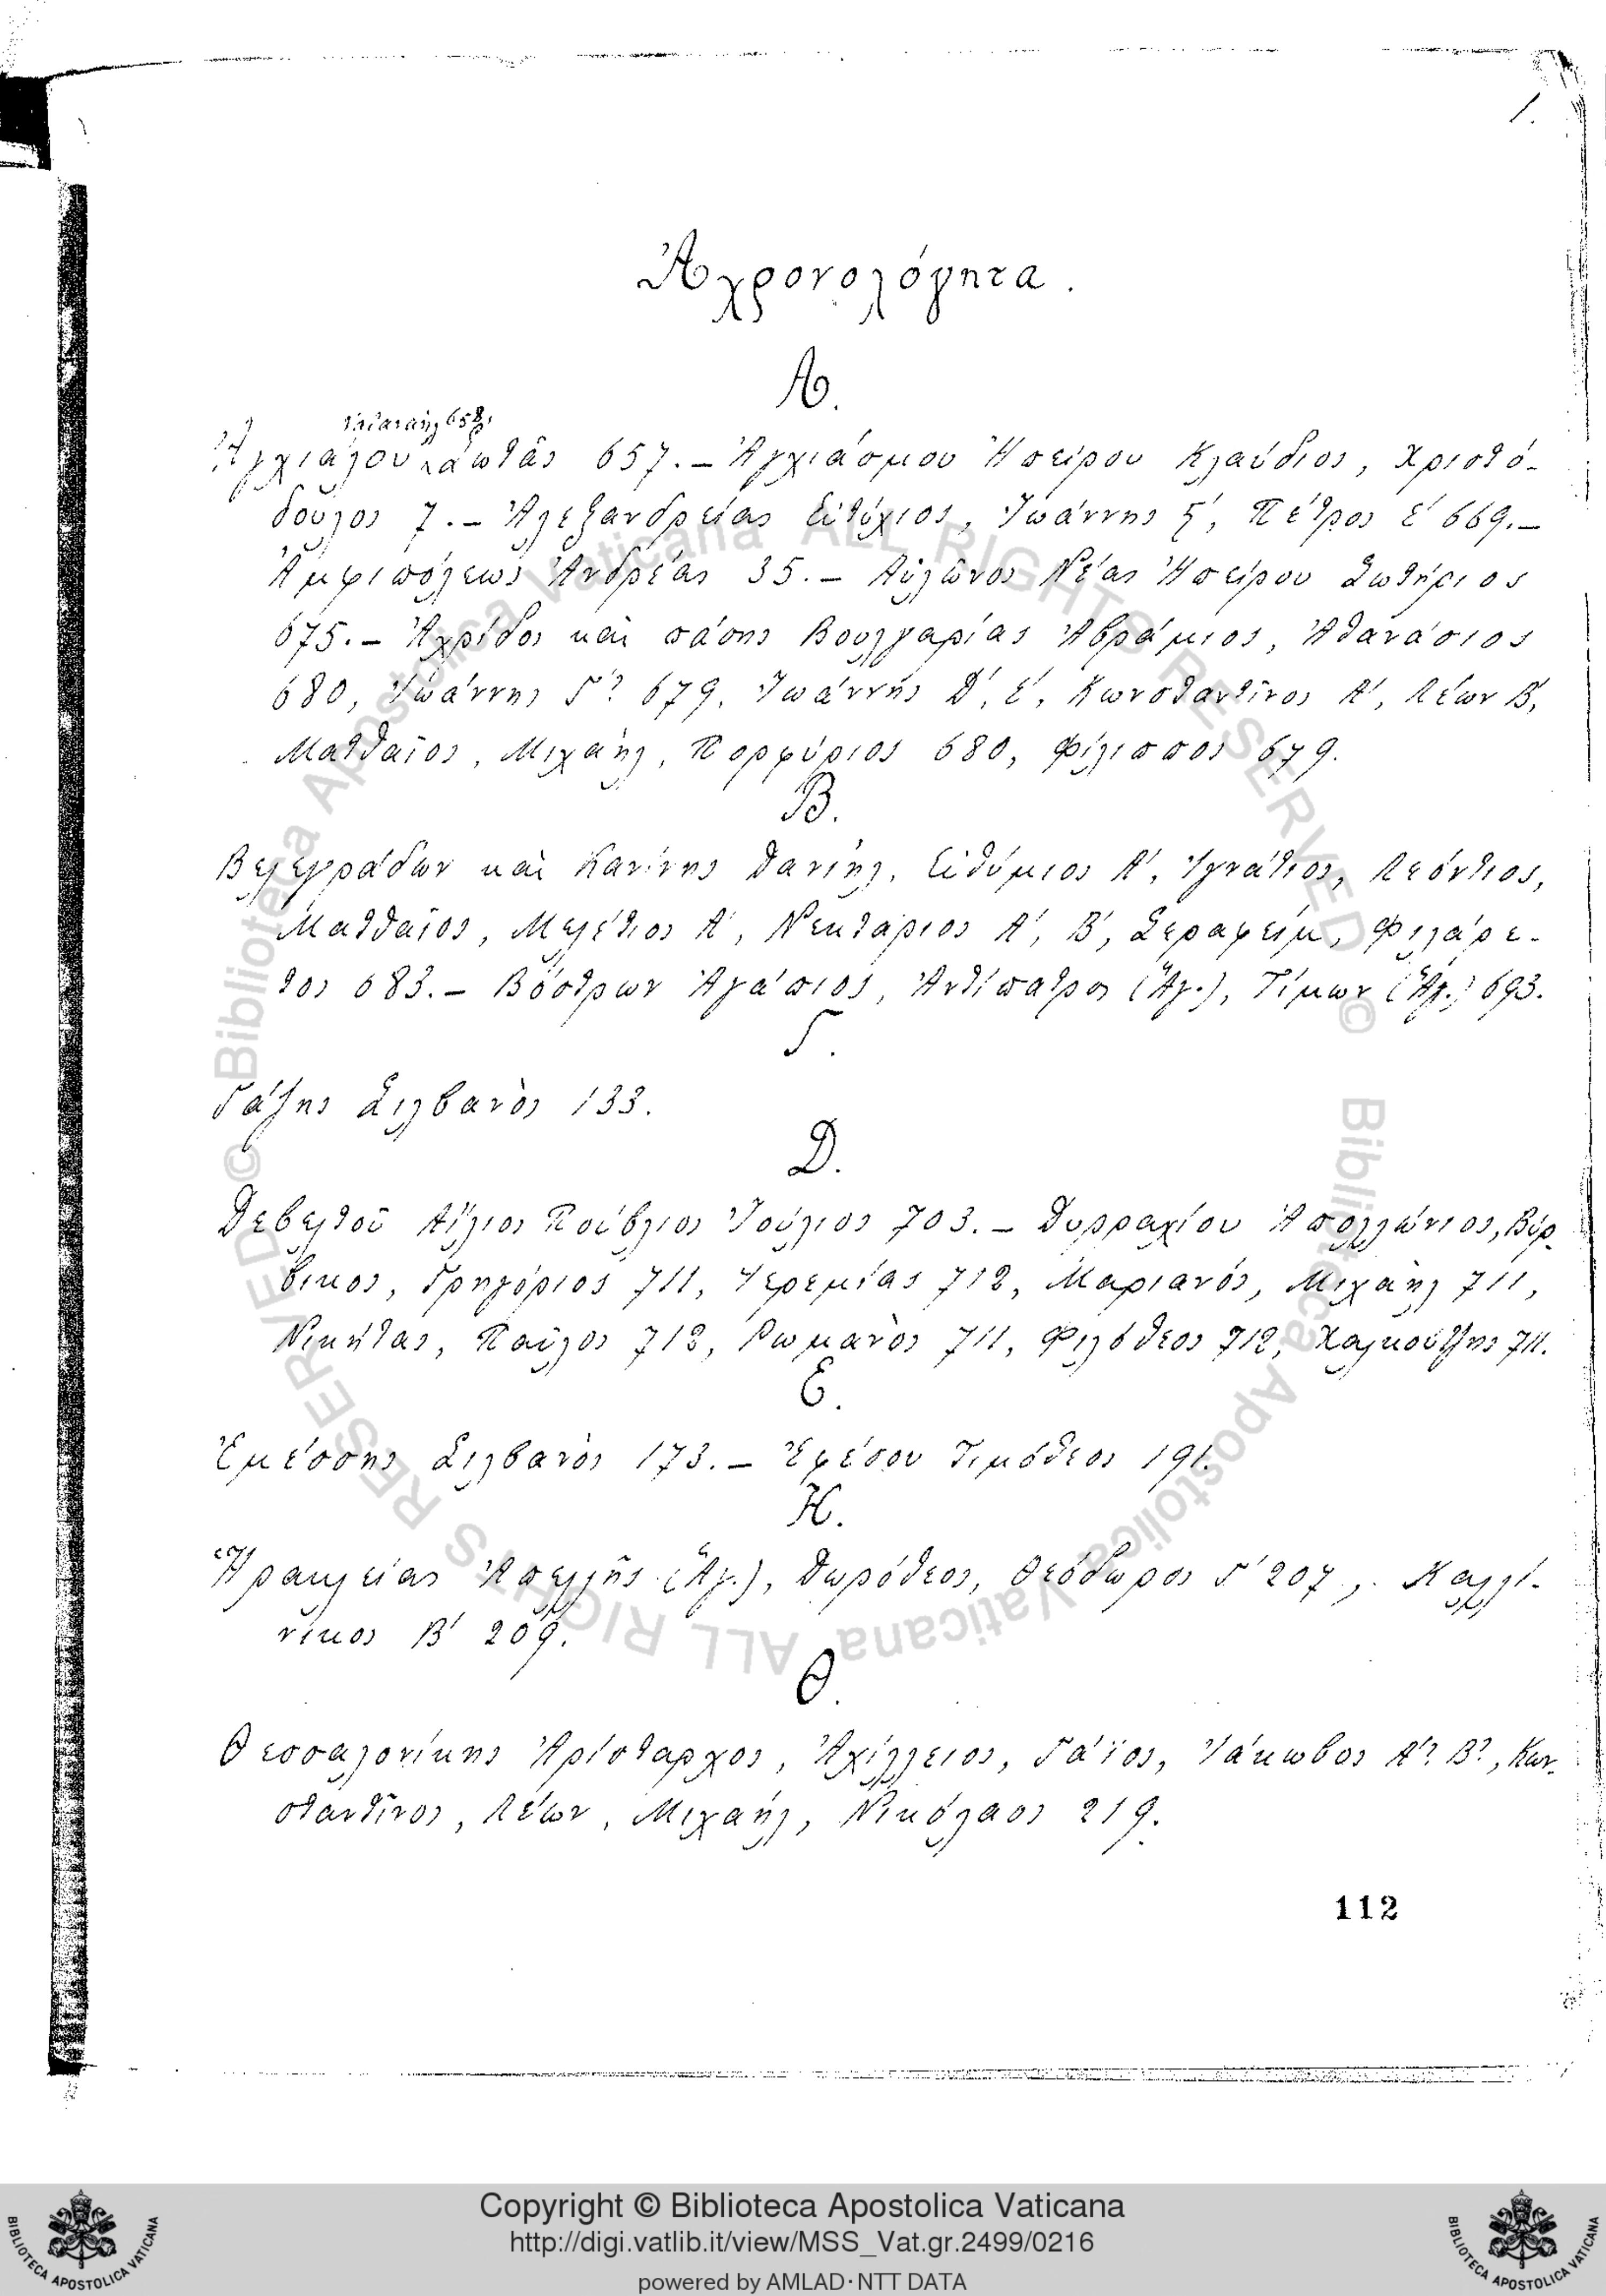 1.
Ἀχρονολόγητα.
Α.
658,
Ἀγχιάλου Σάωτᾶς 657. – Ἀγχιάσμου Ἠπείρου Κλαύδιος, Χριστό-
δουλος 7. – Ἀλεξανδρείας Εὐτύχιος, Ἰωάννης ϛ΄, Πέτρος Ε΄ 669. –
Ἀμφιπόλεως Ἀνδρέας 35. – Αὐλῶνος Νέας Ἠπείρου Σωτήριος
675. – Ἀχρίδος καὶ πάσης Βουλγαρίας Ἀβράμιος, Ἀθανάσιος
680, Ἰωάννης Γ΄? 679, Ἰωάννης Δ΄, Ε΄, Κωνσταντῖνος Α΄, Λέων Β΄,
Ματθαῖος, Μιχαήλ, Πορφύριος 680, Φίλιππος 679.
Β.
Βελεγράδων καὶ Κανίνης Δανιήλ, Εὐθύμιος Α΄, Ἰγνάτιος, Λεόντιος,
Ματθαῖος, Μελέτιος Α΄, Νεκτάριος Α΄, Β΄, Σεραφείμ, Φιλάρε-
τος 683. – Βόστρων Ἀγάπιος, Ἀντίπατρος (Ἅγ.), Τίμων (Ἅγ.) 693.
Γ.
Γάζης Σιλβανὸς 133.
Δ.
Δεβελτοῦ Αἴλιος Πούβλιος Ἰούλιος 703. – Δυρραχίου Ἀπολλώνιος, Βύρ-
βικος, Γρηγόριος 711, Ἱερεμίας 712, Μαριανός, Μιχαήλ 711,
Νικήτας, Παῦλος 712, Ρωμανὸς 711, Φιλόθεος 712, Χαλκούτζης 711.
Ε.
Ἐμέσσης Σιλβανὸς 173. – Ἐφέσου Τιμόθεος 191.
Η.
Ἡρακλείας Ἀπελλῆς (Ἅγ.), Δωρόθεος, Θεόδωρος Γ΄ 207, Καλλί-
νικος Β΄ 209.
Θ.
Θεσσαλονίκης Ἀρίσταρχος, Ἀχίλλειος, Γάϊος, Ἰάκωβος Α΄? Β?, Κων-
σταντῖνος, Λέων, Μιχαήλ, Νικόλαος 219.
112
© Biblioteca Apostolica Vaticana ALL RIGHTS RESERVED © Biblioteca Apostolica Vaticana ALL RIGHTS RESERVED
Copyright © Biblioteca Apostolica Vaticana
http://digi.vatlib.it/view/MSS_Vat.gr.2499/0216
powered by AMLAD·NTT DATA
BIBLIOTECA APOSTOLICA VATICANA
BIBLIOTECA APOSTOLICA VATICANA